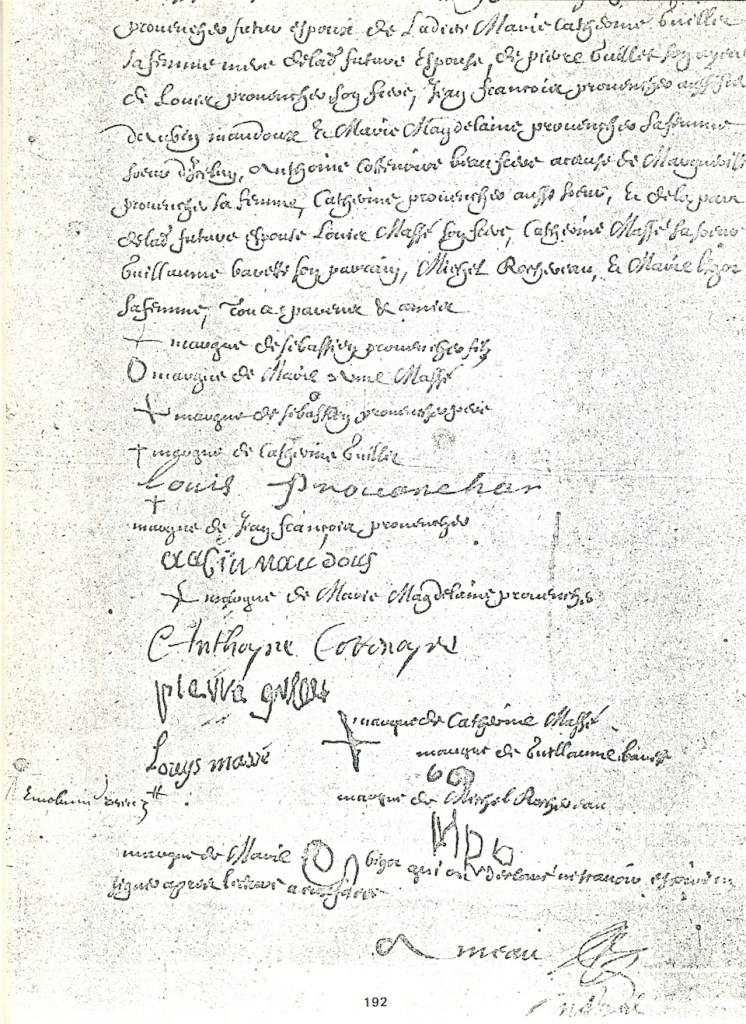 provencher futur espoux de Ladicte Marie Catherine Guillet
sa femme mere delad. future Espouse, de pierre Guillet son ayeul
de Louis provencher son frere, Jean françois provencher aussi frere
daubin maudoux Et Marie Magdelaine provencher sa femme
soeur d'Iceluy, Anthoine Cottenoire beau frere acause de Margueritte
provencher sa femme, Catherine provencher aussi soeur, Et dela part
delad. future espouse Louis Massé son frere, Catherine Massé sa soeur
Guillaume barette son parrain, Michel Rochereau, Et Marie bigot
sa femme, Tous parens & amis
marque de sebastien provencher filz
marque de Marie Anne Massé
marque de sebastien provencher pere
marque de Catherine Guillet
Louis Prouanchar
marque de Jean françois provencher
aubin maudous
marque de Marie Magdelaine provencher
Anthoyne Cotenoyre
pierre guillet
marque de Catherine Massé
Louys massé
marque de Guillaume barette
marque de Michel Rochereau
marque de Marie bigot qui ont declaré ne scavoir escrire ny
signer apres lecture a eux faicte
Ameau
192